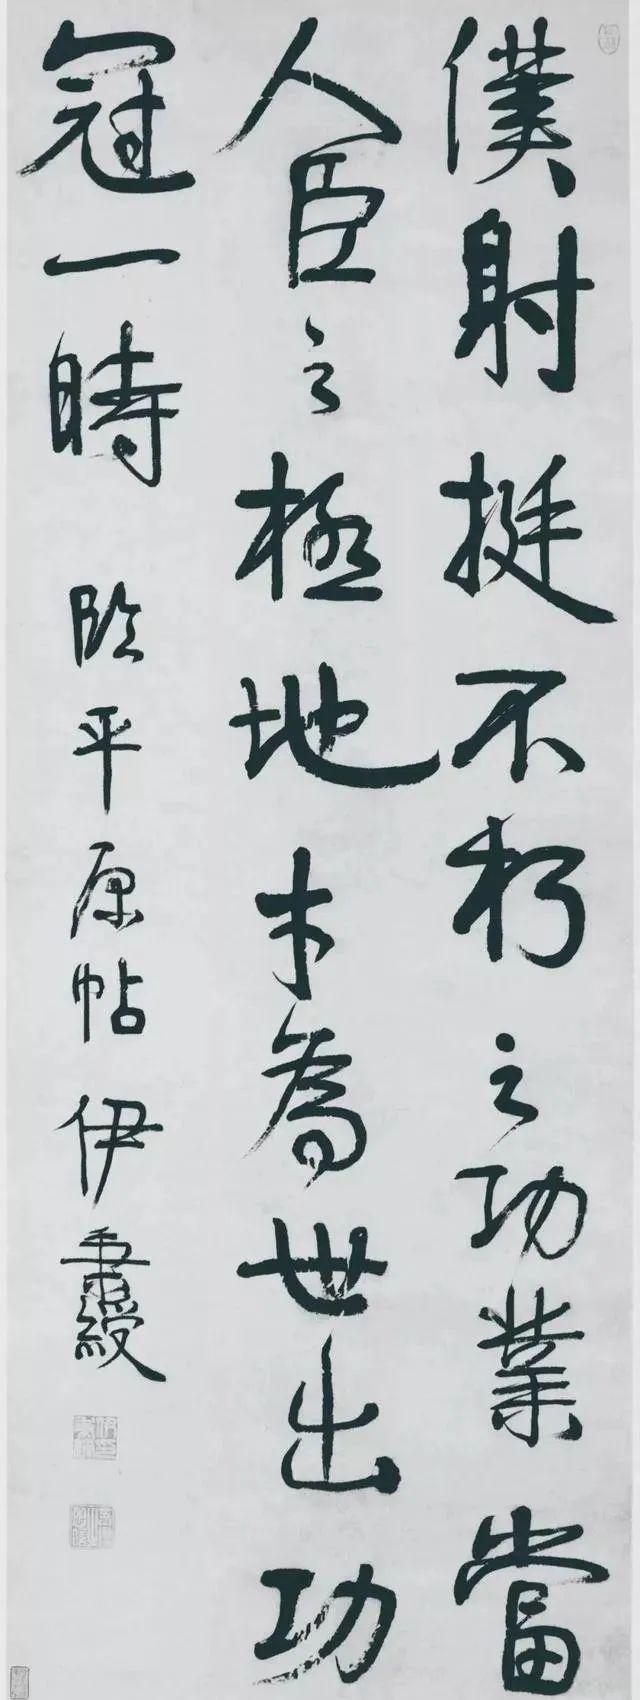 僕射挺不朽之功業當
人臣之極地才為世出功
冠一時
臨平原帖伊秉綬